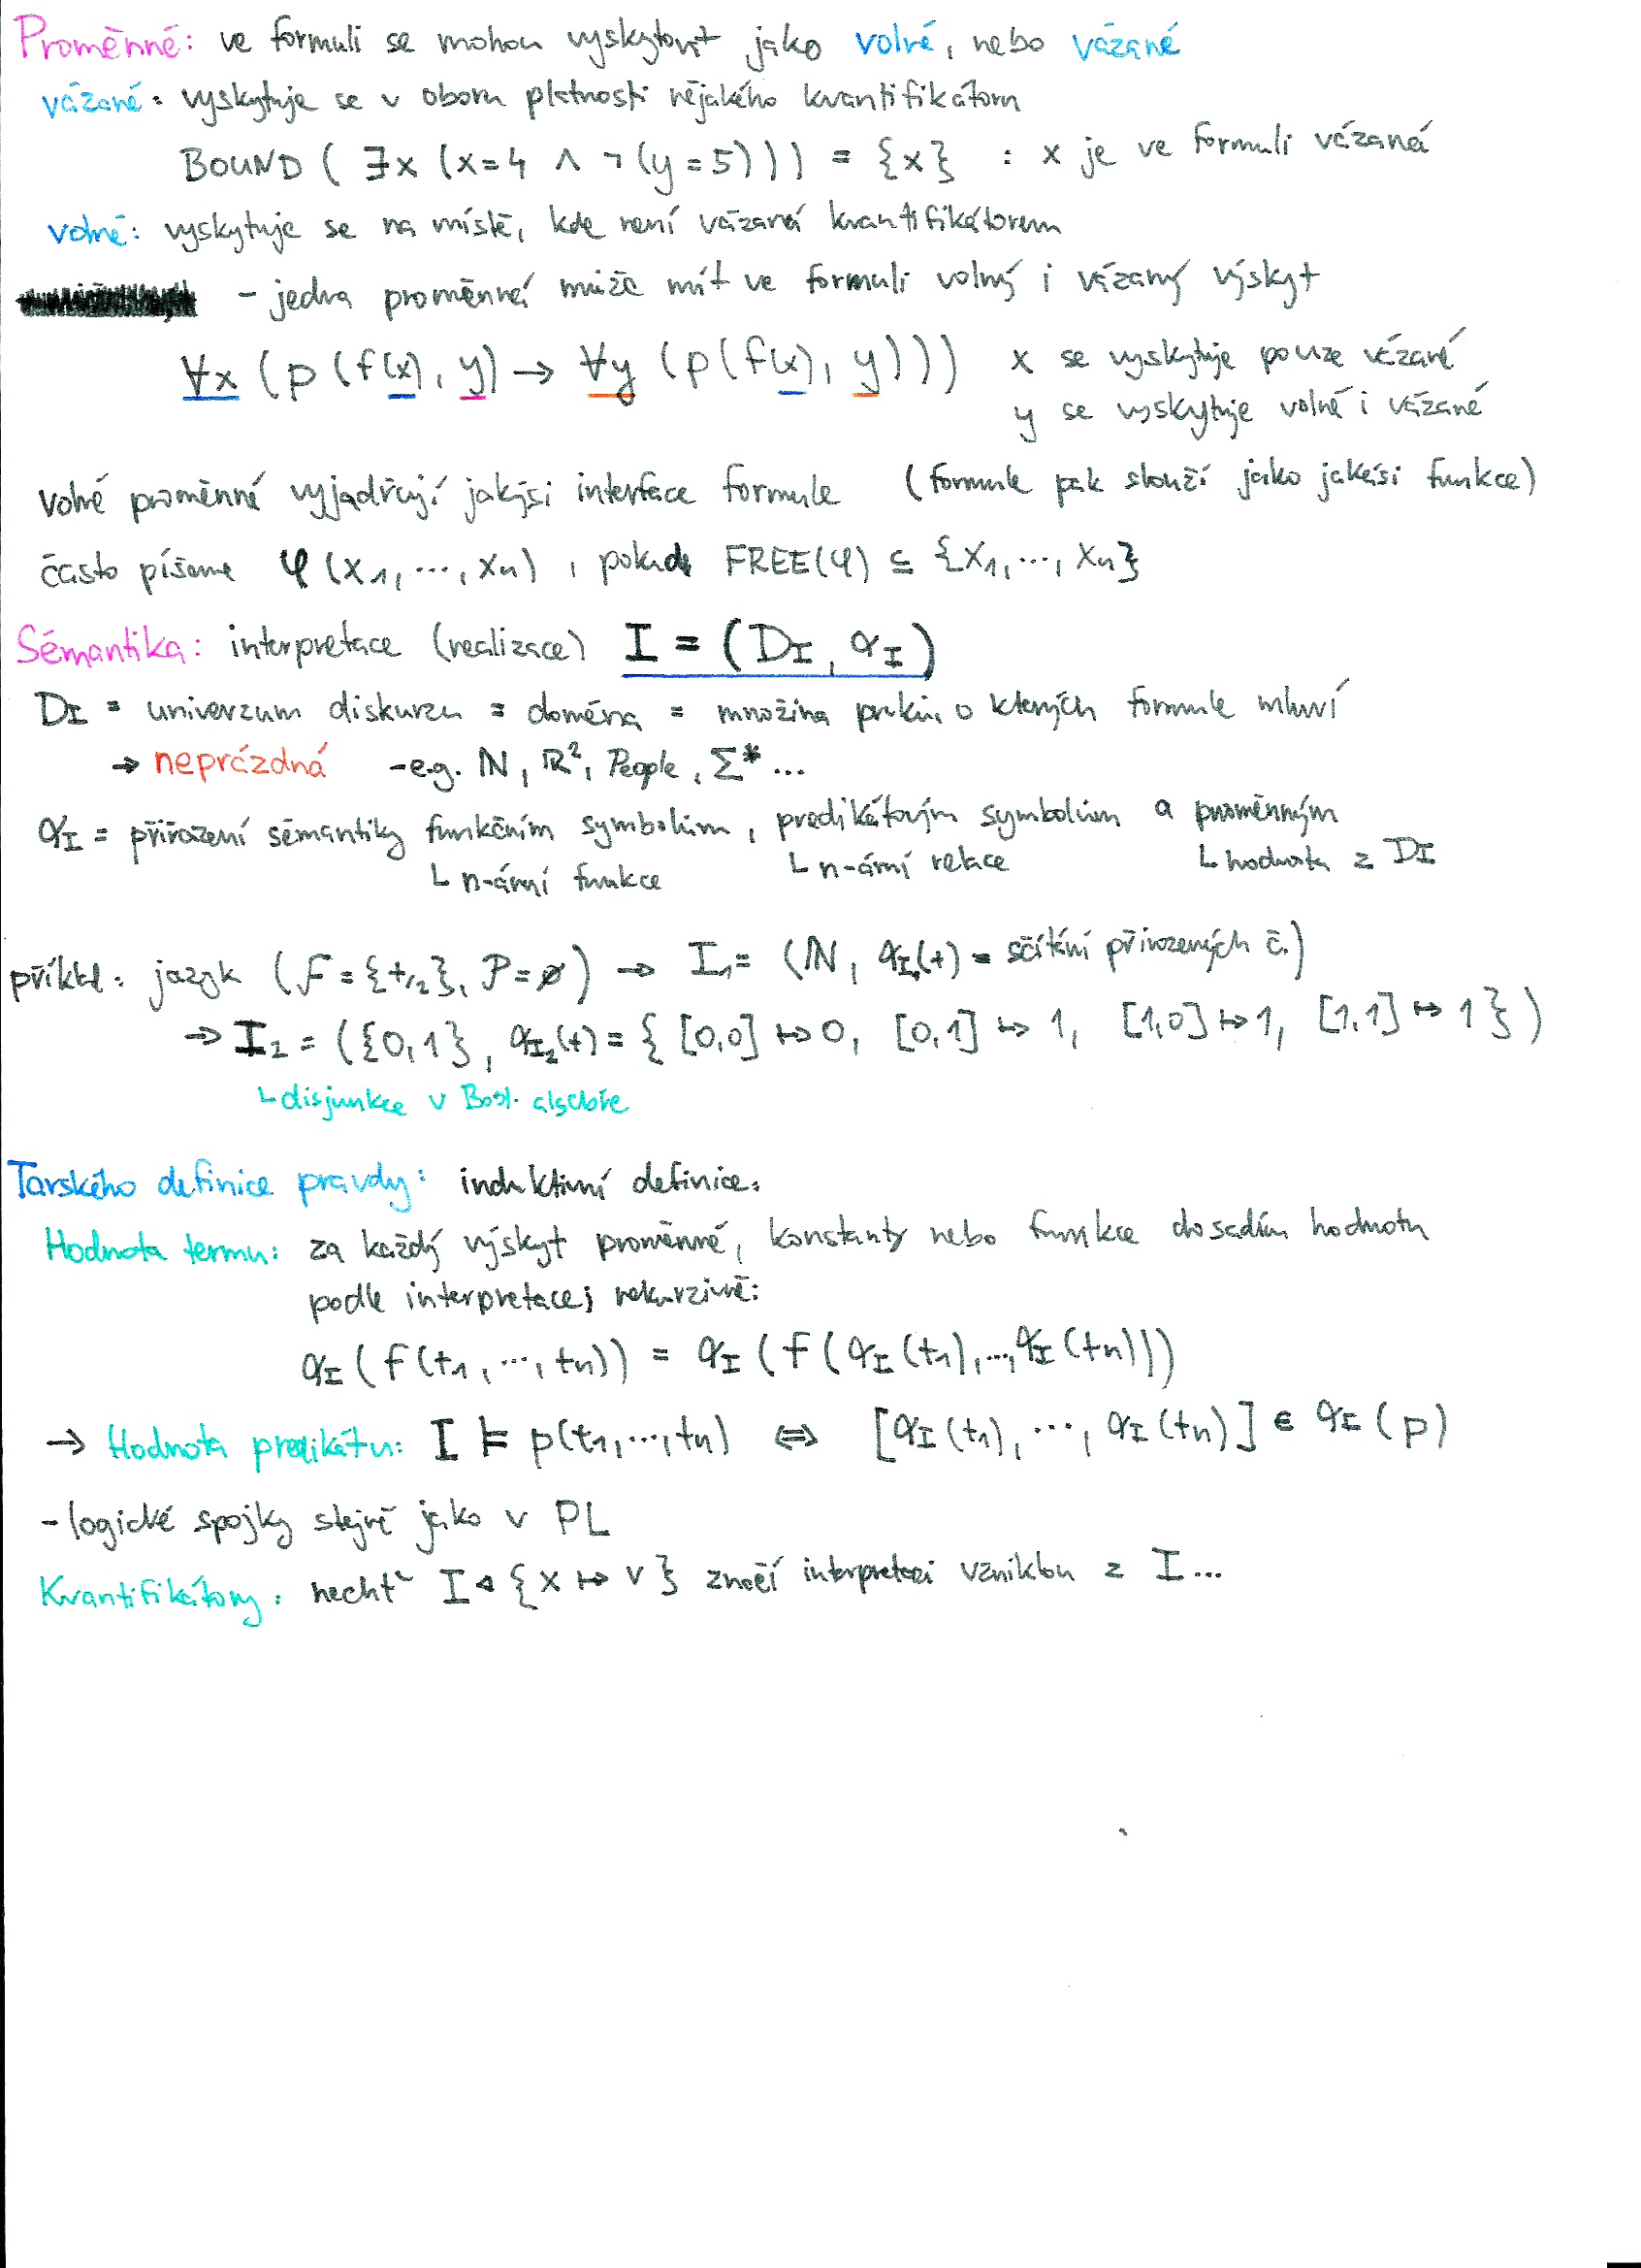 Proměnné: ve formuli se mohou vyskytovat jako volné, nebo vázané
vázané: vyskytuje se v oboru platnosti nějakého kvantifikátoru
BOUND ( ∃x (x=4 ∧ ¬(y=5))) = {x} : x je ve formuli vázaná
volné: vyskytuje se na místě, kde není vázaná kvantifikátorem
- jedna proměnná může mít ve formuli volný i vázaný výskyt
∀x (p (f(x), y) → ∀y (p(f(x), y))) x se vyskytuje pouze vázané
y se vyskytuje volně i vázané
volné proměnné vyjadřují jakýsi interface formule (formule pak slouží jako jakási funkce)
často píšeme φ(x₁, ..., xₙ), pokud FREE(φ) ⊆ {x₁, ..., xₙ}
Sémantika: interpretace (realizace) I = (D_I, α_I)
D_I = univerzum diskurzu = doména = množina prvků, o kterých formule mluví
→ neprázdná - e.g. ℕ, ℝ², People, Σ* ...
α_I = přiřazení sémantiky funkčním symbolům, predikátovým symbolům a proměnným
└ n-ární funkce └ n-ární relace └ hodnota z D_I
příkl.: jazyk (F = {+/₂}, P = ∅) → I₁ = (ℕ, α_I₁(+) = sčítání přirozených č.)
→ I₂ = ({0,1}, α_I₂(+) = { [0,0] ↦ 0, [0,1] ↦ 1, [1,0] ↦ 1, [1,1] ↦ 1 })
└ disjunkce v Bool. algebře
Tarského definice pravdy: induktivní definice.
Hodnota termu: za každý výskyt proměnné, konstanty nebo funkce dosadím hodnotu
podle interpretace; rekurzivně:
α_I (f(t₁, ..., tₙ)) = α_I (f (α_I (t₁), ..., α_I (tₙ)))
→ Hodnota predikátu: I ⊨ p(t₁, ..., tₙ) ⇔ [α_I (t₁), ..., α_I (tₙ)] ∈ α_I (p)
- logické spojky stejně jako v PL
Kvantifikátory: nechť I ◁ {x ↦ v} značí interpretaci vzniklou z I...